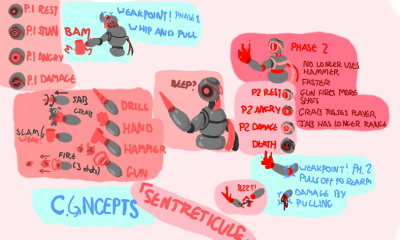 P.1 REST
P.1 STUN
P.1 ANGRY
P.1 DAMAGE
BAM
WEAKPOINT! PHASE 1
WHIP AND PULL
BEEP?
PHASE 2
NO LONGER USES
HAMMER
FASTER
GUN FIRES MORE
SHOTS
GRAB TOSSES PLAYER
JAB HAS LONGER RANGE
P2 REST
P2 ANGRY
P2 DAMAGE
DEATH
JAB
GRAB
SLAM
WEAK!
FIRE
(3 shots)
DRILL
HAND
HAMMER
GUN
WEAKPOINT! PH. 2
PULLS OFF FOREARM
DAMAGE BY
PULLING
BZZT!
CONCEPTS
SENTRETICULE